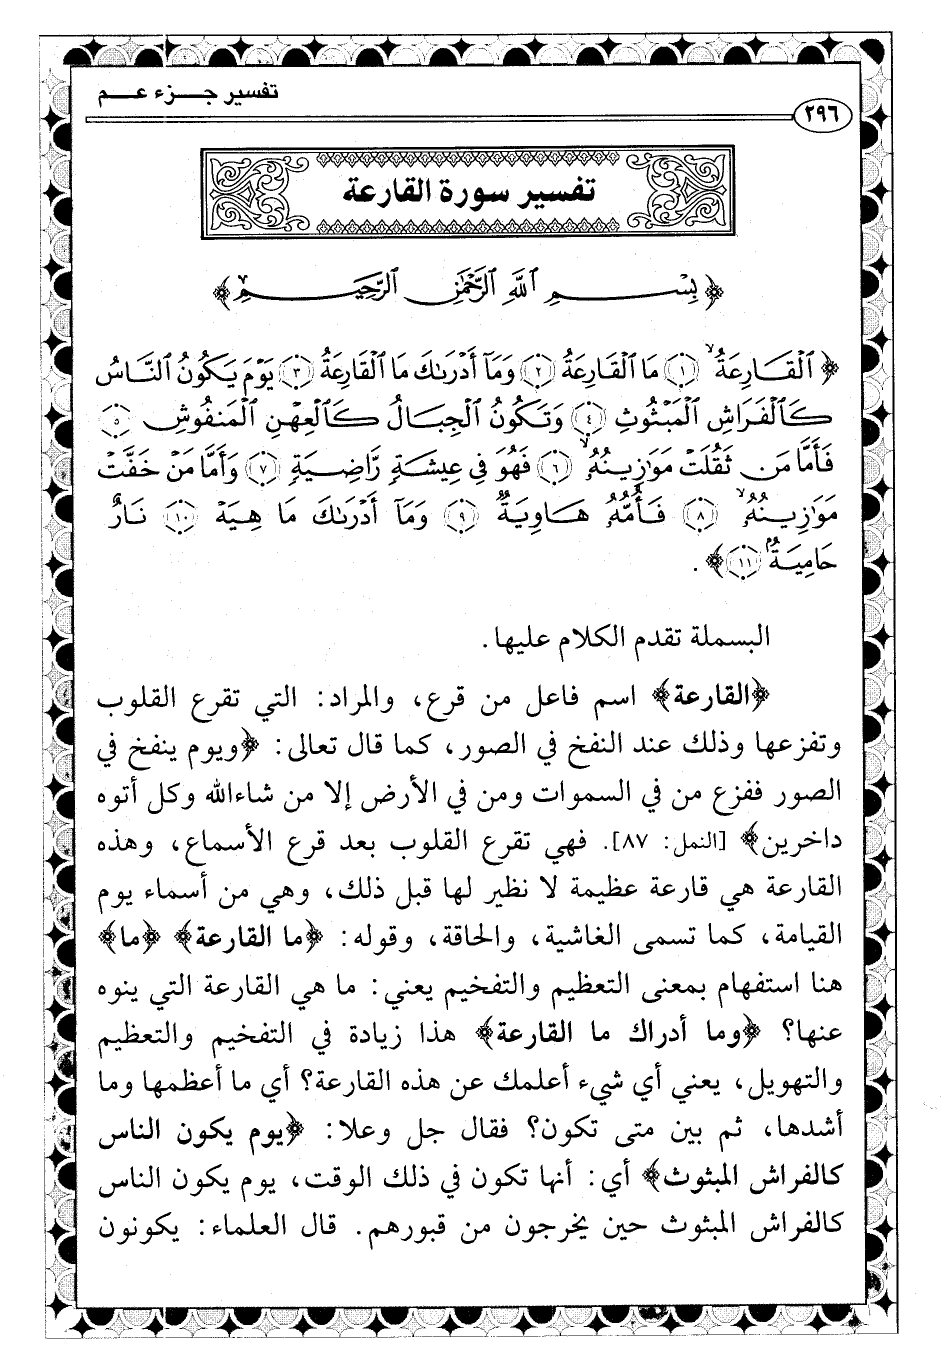 تفسير جـزء عـم
٢٩٦
تفسير سورة القارعة
﴿بِسْمِ ٱللَّهِ ٱلرَّحْمَٰنِ ٱلرَّحِيمِ﴾
﴿ٱلْقَارِعَةُ ۙ ﴿١﴾ مَا ٱلْقَارِعَةُ ﴿٢﴾ وَمَآ أَدْرَىٰكَ مَا ٱلْقَارِعَةُ ﴿٣﴾ يَوْمَ يَكُونُ ٱلنَّاسُ
كَٱلْفَرَاشِ ٱلْمَبْثُوثِ ﴿٤﴾ وَتَكُونُ ٱلْجِبَالُ كَٱلْعِهْنِ ٱلْمَنفُوشِ ﴿٥﴾
فَأَمَّا مَن ثَقُلَتْ مَوَٰزِينُهُۥ ۙ ﴿٦﴾ فَهُوَ فِى عِيشَةٍ رَّاضِيَةٍ ﴿٧﴾ وَأَمَّا مَنْ خَفَّتْ
مَوَٰزِينُهُۥ ۙ ﴿٨﴾ فَأُمُّهُۥ هَاوِيَةٌ ﴿٩﴾ وَمَآ أَدْرَىٰكَ مَا هِيَهْ ﴿١٠﴾ نَارٌ
حَامِيَةٌۢ ﴿١١﴾﴾.
البسملة تقدم الكلام عليها.
﴿القارعة﴾ اسم فاعل من قرع، والمراد: التي تقرع القلوب
وتفزعها وذلك عند النفخ في الصور، كما قال تعالى: ﴿ويوم ينفخ في
الصور ففزع من في السموات ومن في الأرض إلا من شاءالله وكل أتوه
داخرين﴾ [النمل: ٨٧]. فهي تقرع القلوب بعد قرع الأسماع، وهذه
القارعة هي قارعة عظيمة لا نظير لها قبل ذلك، وهي من أسماء يوم
القيامة، كما تسمى الغاشية، والحاقة، وقوله: ﴿ما القارعة﴾ ﴿ما﴾
هنا استفهام بمعنى التعظيم والتفخيم يعني: ما هي القارعة التي ينوه
عنها؟ ﴿وما أدراك ما القارعة﴾ هذا زيادة في التفخيم والتعظيم
والتهويل، يعني أي شيء أعلمك عن هذه القارعة؟ أي ما أعظمها وما
أشدها، ثم بين متى تكون؟ فقال جل وعلا: ﴿يوم يكون الناس
كالفراش المبثوث﴾ أي: أنها تكون في ذلك الوقت، يوم يكون الناس
كالفراش المبثوث حين يخرجون من قبورهم. قال العلماء: يكونون